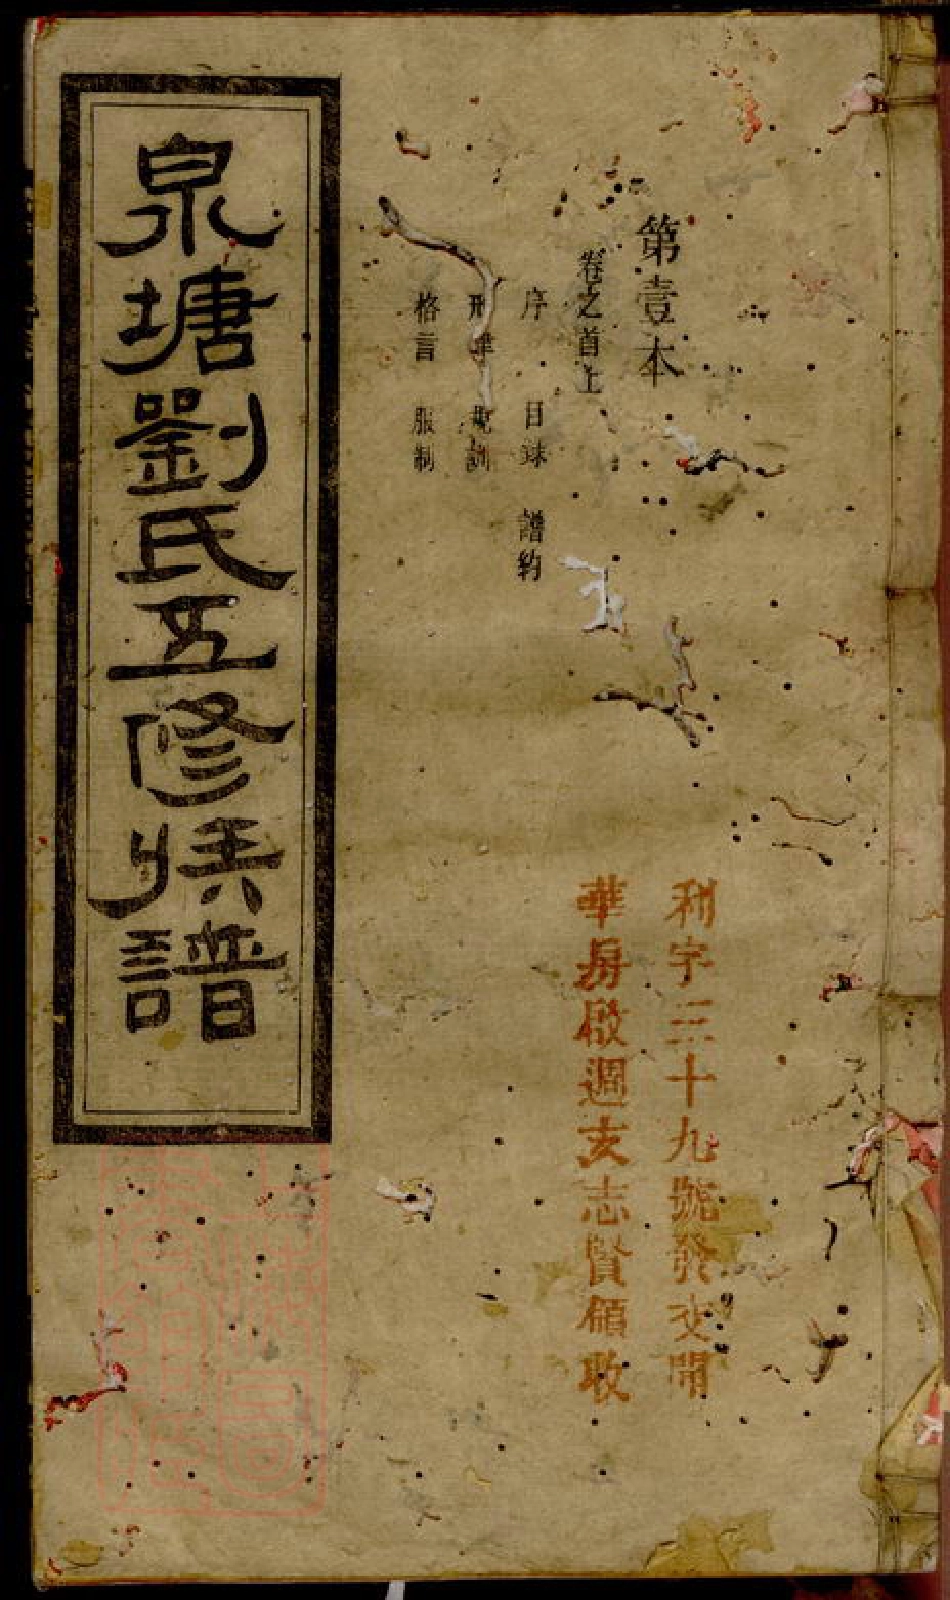 第壹本
卷之首上
序 目錄 譜約
刑律 規訓
格言 服制
利字三十九號發交開
華房啟週亥志賢領收
泉塘劉氏五修族譜